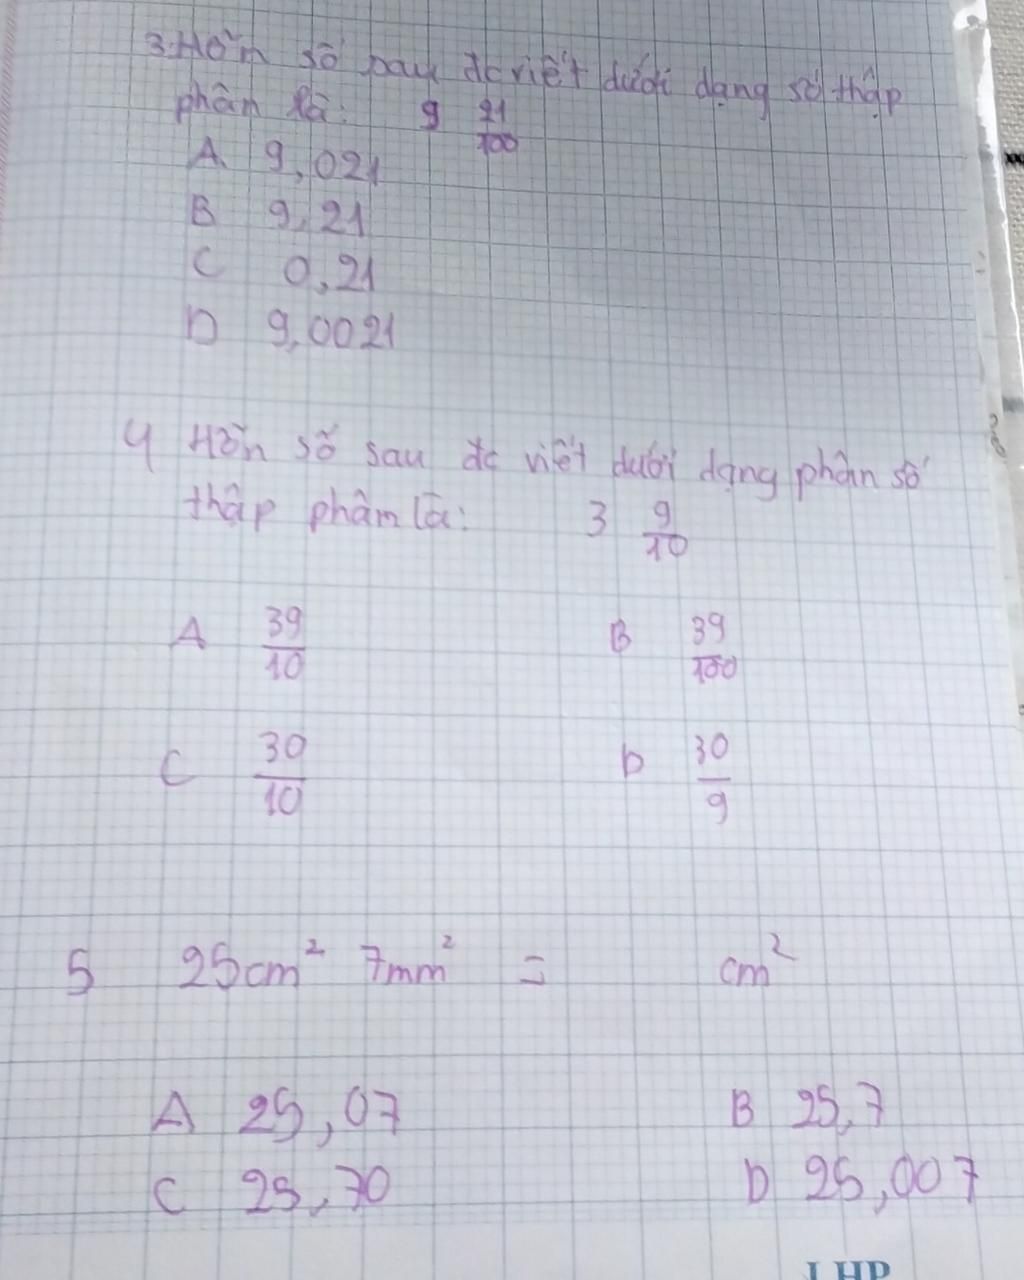 3. Hỗn số sau đc viết dưới dạng số thập
phân là: 9 21/100
A 9,021
B 9,21
C 0,21
D 9,0021
4 Hỗn số sau đc viết dưới dạng phân số
thập phân là: 3 9/10
A 39/10 B 39/100
C 30/10 D 30/9
5 25cm² 7mm² = cm²
A 25,07 B 25,7
C 25,70 D 25,007
LHP